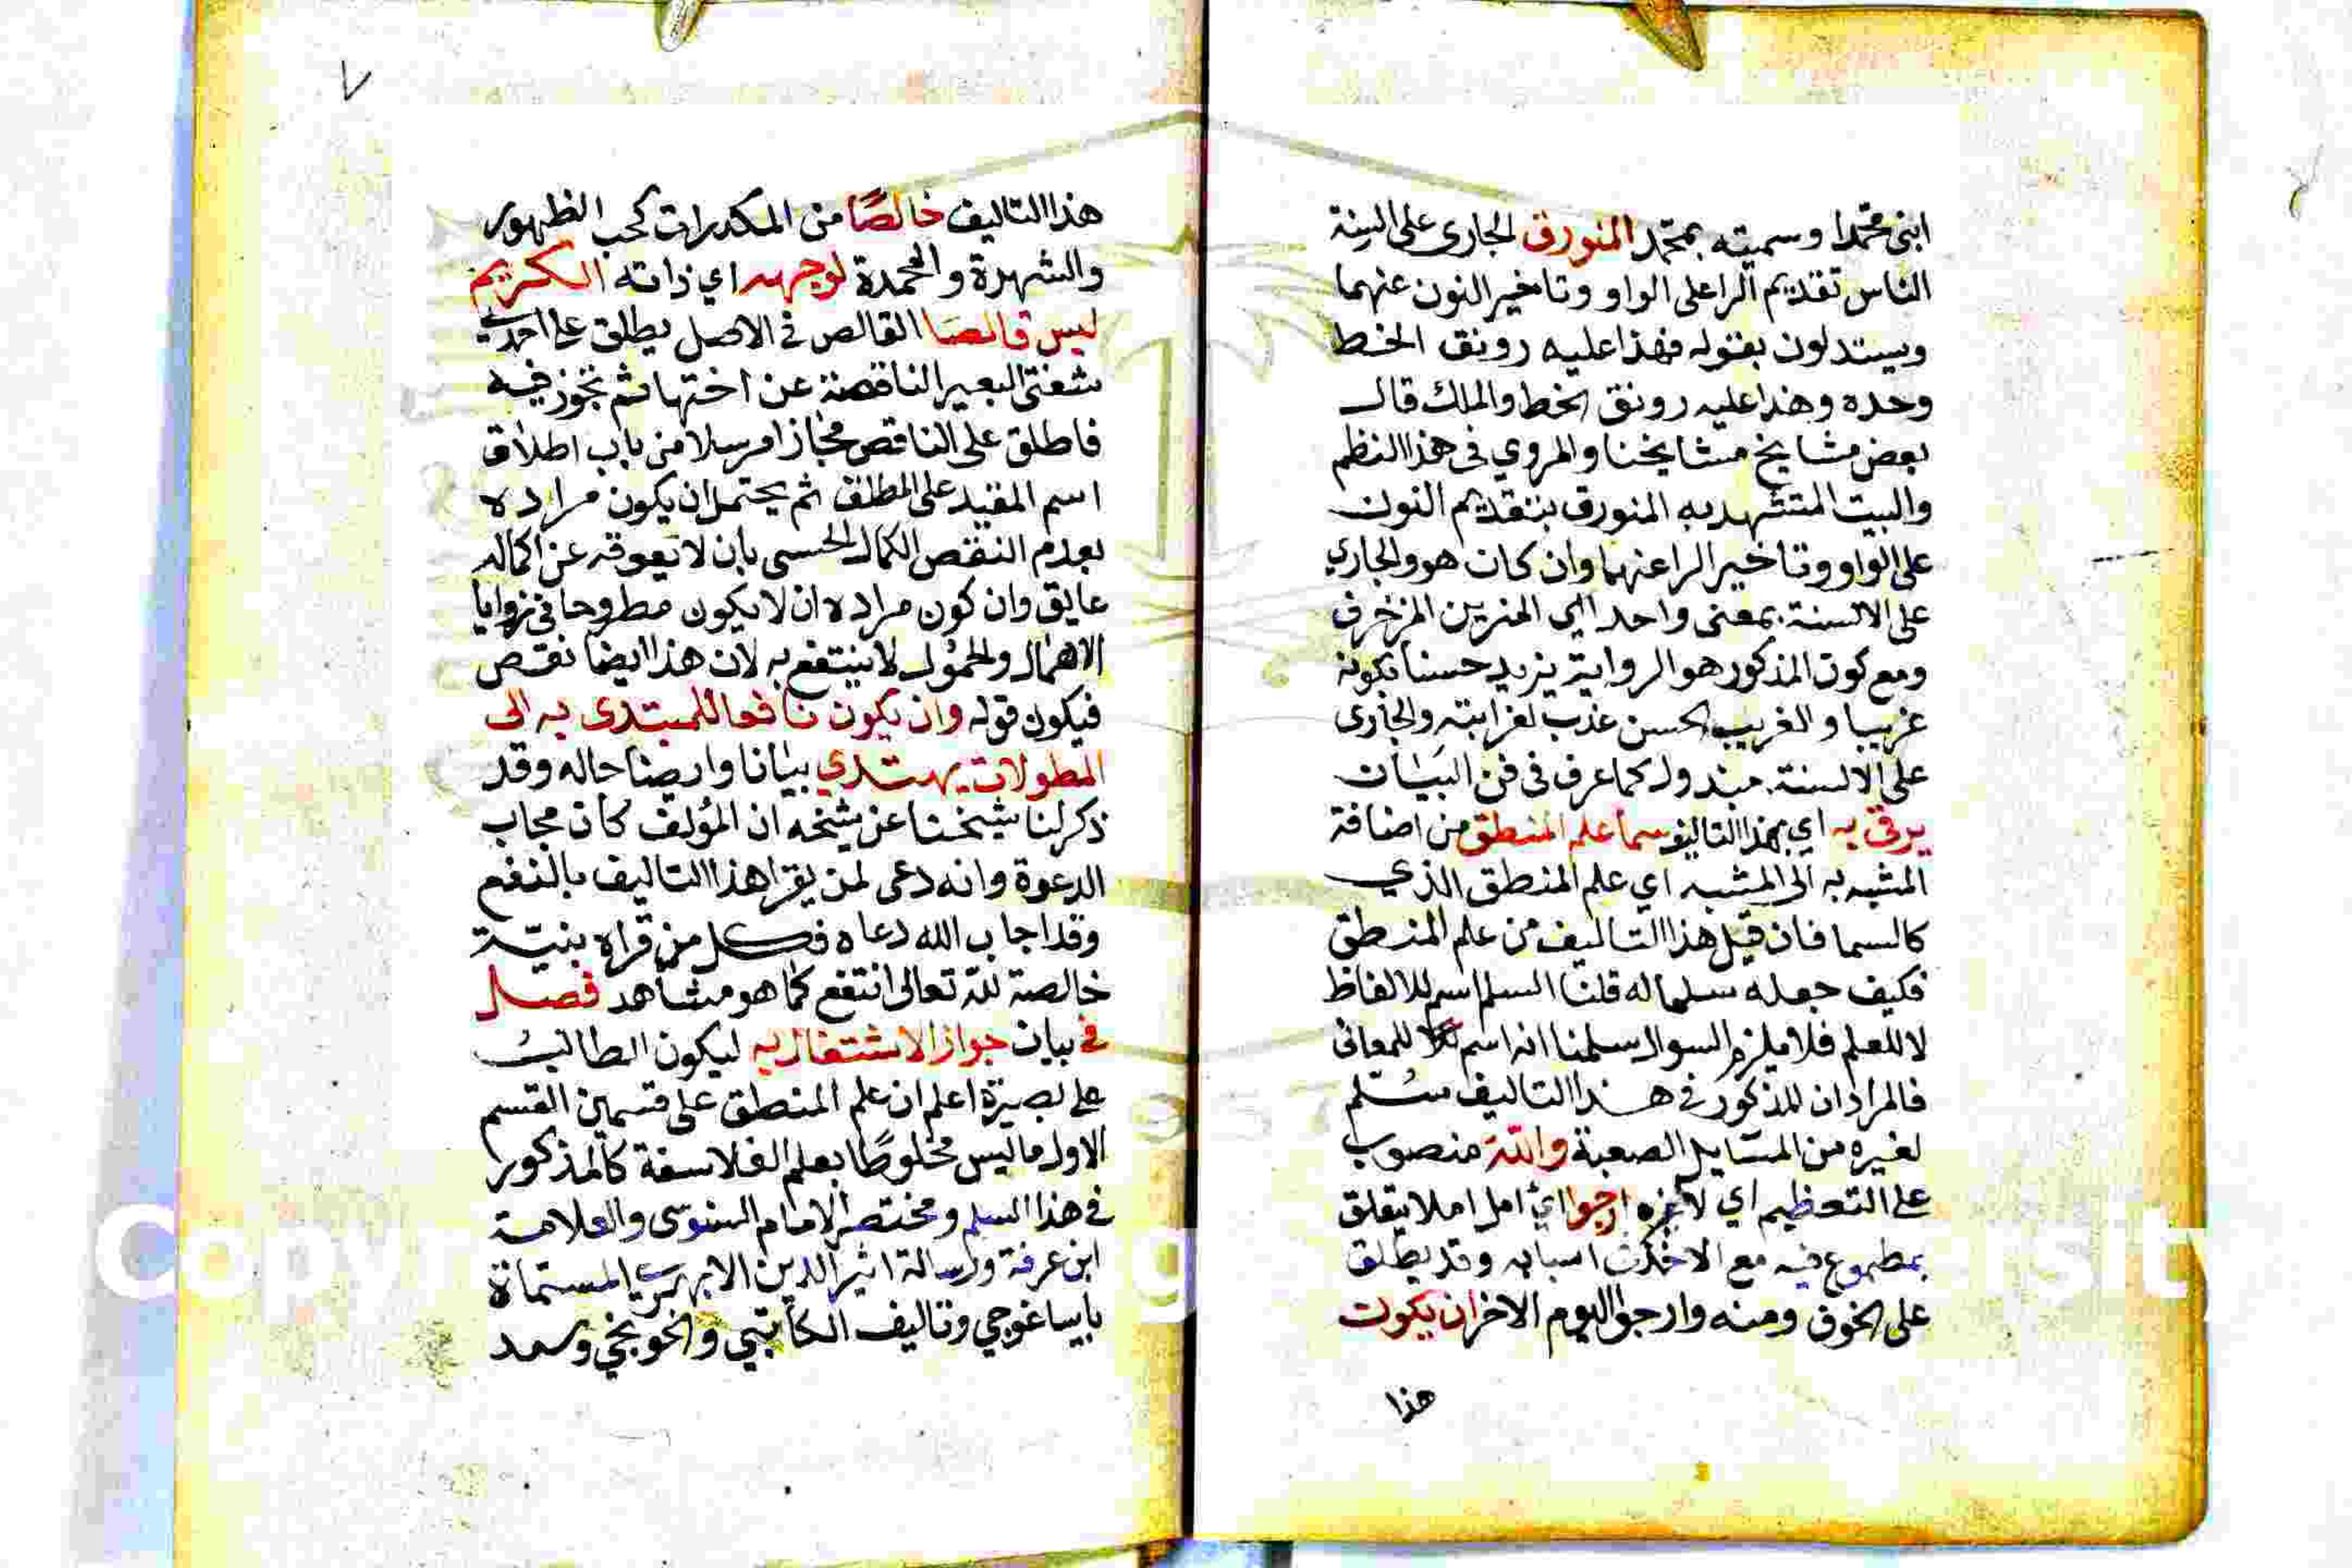 ابنى محمدا وسميته بمحمد المنورق الجارى على السنة
الناس تقديم الرا على الواو وتاخير النون عنهما
ويستدلون بقوله فهذا عليه رونق الخط
وحده وهذا عليه رونق الخط والملك قال
بعض مشايخ مشايخنا والمروي فى هذا النظم
والبيت المتشهد به المنورق بتقديم النون
على الواو وتاخير الرا عنهما وان كان هو والجاري
على الالسنة بمعنى واحد اي المزين المزخرف
ومع كون المذكور هو الرواية يزيد حسنا بكونه
غريبا والغريب الحسن عذب لغرابته والجارى
على الالسنة مبذول كما عرف فى فن البيان
يرقى به اي بهذا التاليف سما علم المنطق من اضافة
المشبه به الى المشبه اي علم المنطق الذي
كالسما فان قيل هذا التاليف من علم المنطق
فكيف جعله سلما له قلنا السلم اسم للالفاظ
لا للعلم فلا يلزم السوال سلمنا انه اسم للمعانى
فالمراد ان المذكور في هذا التاليف سلم
لغيره من المسايل الصعبة والله منصوب
على التعظيم اي لا غيره ارجوا اي امل املا يتعلق
بمطموع فيه مع الاخذ فى اسبابه وقد يطلق
على الخوف ومنه وارجوا اليوم الاخر ان يكون
هذا
٧
هذا التاليف خالصًا من المكدرات كحب الظهور
والشهرة والمحمدة لوجهه اي ذاته الكريم
ليس قالصا القالص في الاصل يطلق على احدى
شفتى البعير الناقصة عن اختها ثم تجوز فيه
فاطلق على الناقص مجازا مرسلا من باب اطلاق
اسم المقيد على المطلق ثم يحتمل ان يكون مراده
بعدم النقص الكمال الحسى بان لا يعوقه عن اكماله
عايق وان كون مراده ان لا يكون مطروحا فى زوايا
الاهمال والخمول لا ينتفع به لان هذا ايضا نقص
فيكون قوله وان يكون نافعا للمبتدى به الى
المطولات يهتدي بيانا وايضاحا له وقد
ذكر لنا شيخنا عن شيخه ان المؤلف كان مجاب
الدعوة وانه دعى لمن يقرا هذا التاليف بالنفع
وقد اجاب الله دعاه فكل من قراه بنية
خالصة لله تعالى انتفع كما هو مشاهد فصل
في بيان جواز الاشتغال به ليكون الطالب
على بصيرة اعلم ان علم المنطق على قسمين القسم
الاول ما ليس مخلوطًا بعلم الفلاسفة كالمذكور
في هذا السلم ومختصر الامام السنوسى والعلامة
ابن عرفة ورسالة اثير الدين الابهري المسماة
بايساغوجي وتاليف الكاتبي والخونجي وسعد